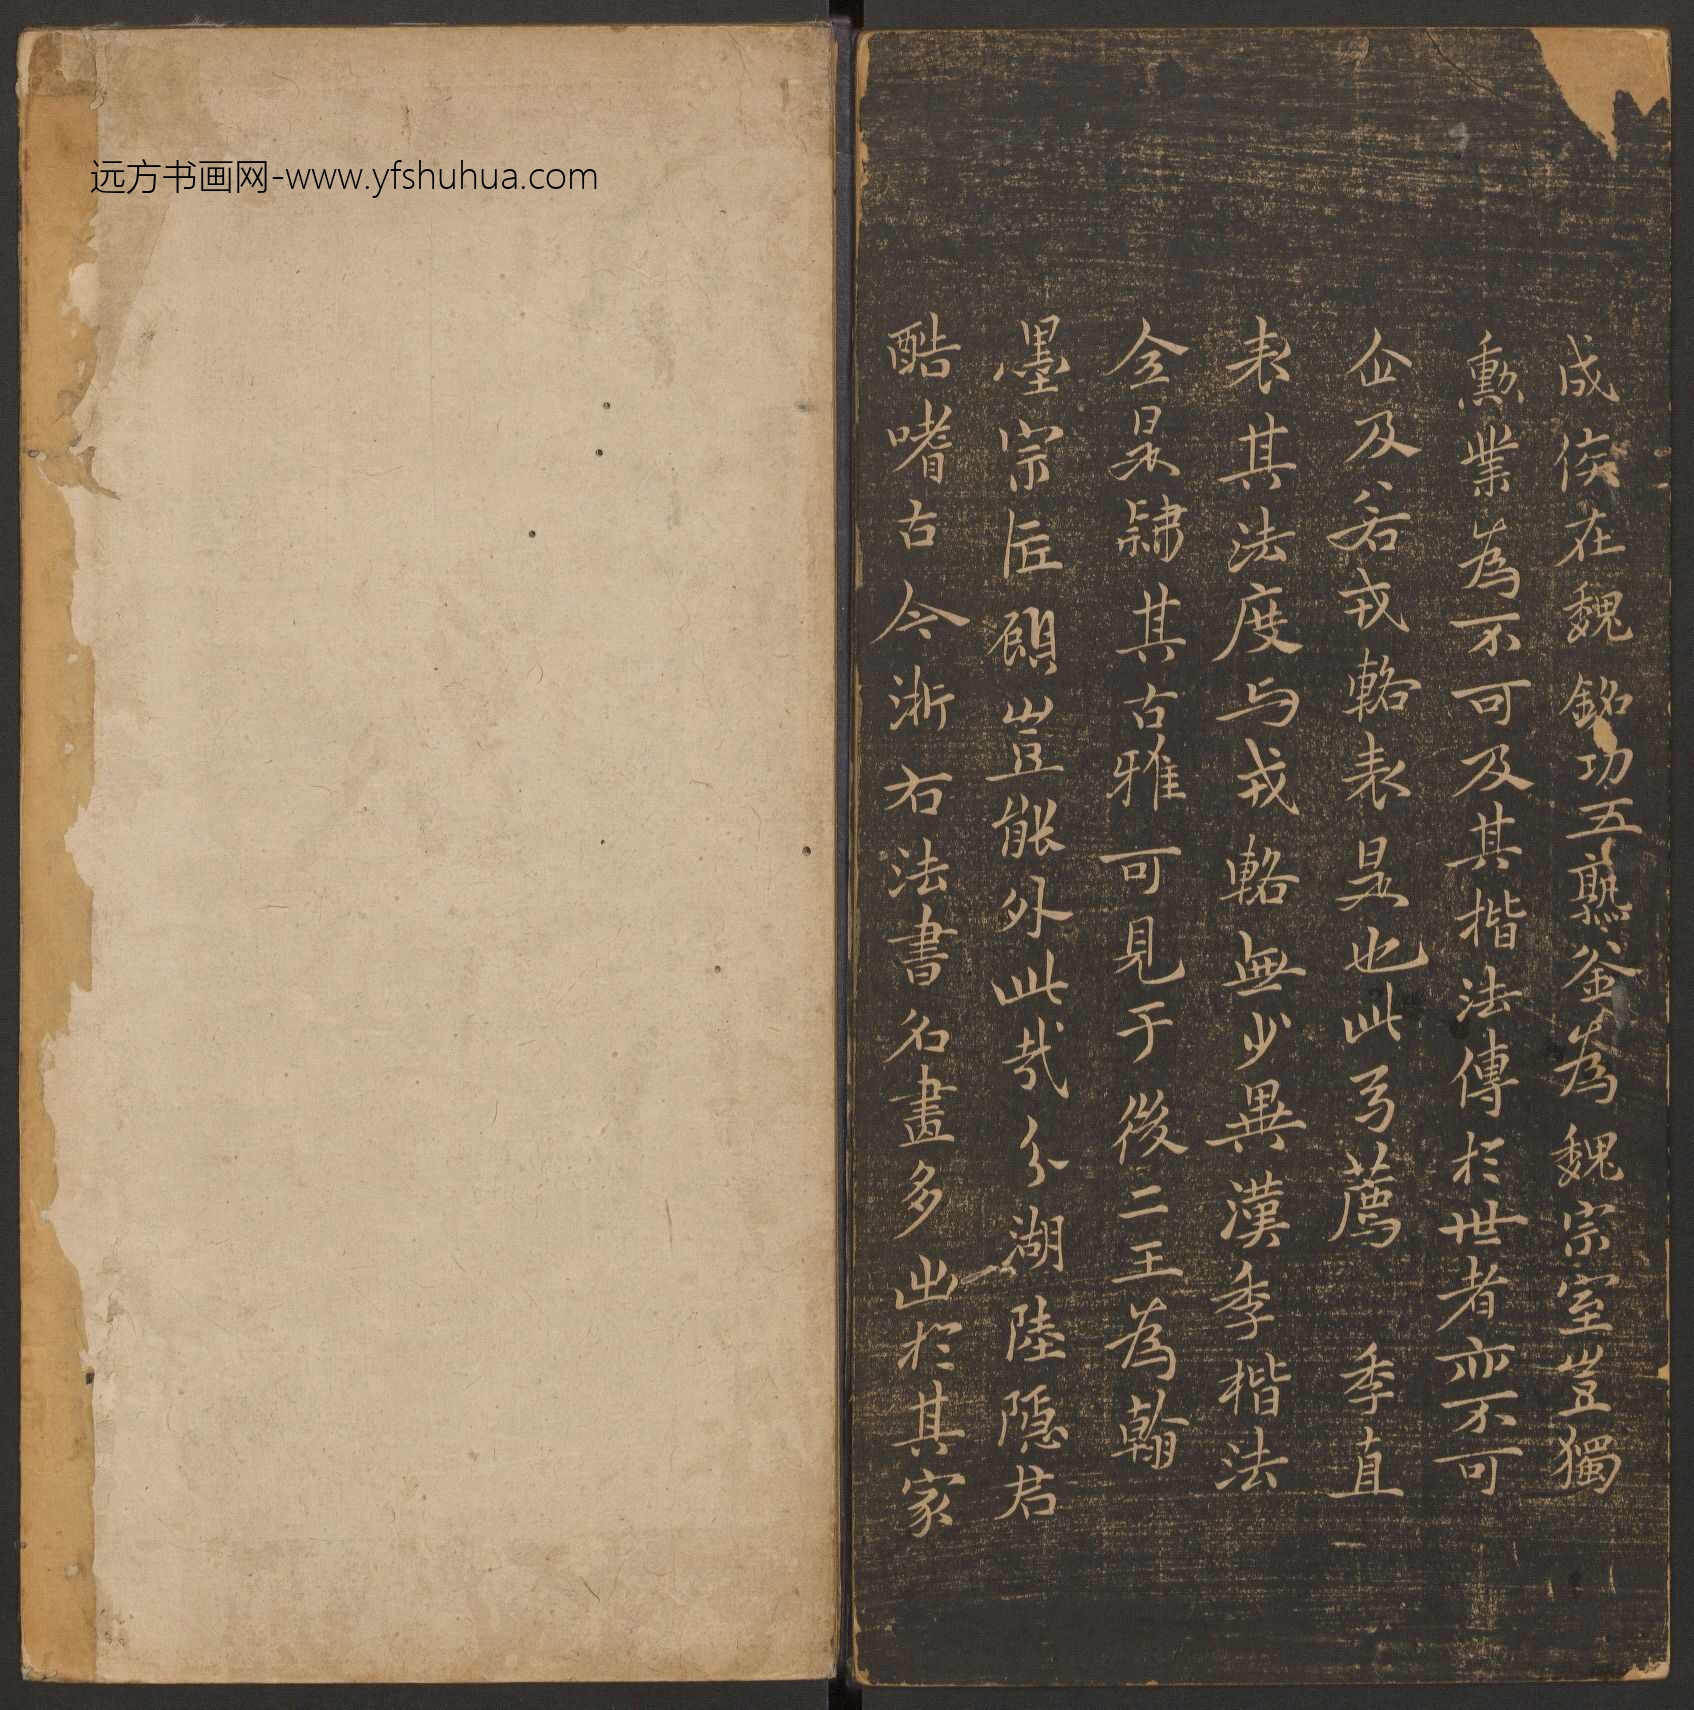 远方书画网-www.yfshuhua.com
成侯在魏銘功五熟釜為魏宗室豈獨
勲業為不可及其楷法傳於世者亦不可
企及若戎輅表是也此乃薦季直
表其法度与戎輅無少異漢季楷法
全是隸其古雅可見于後二王為翰
墨宗匠顧豈能外此哉分湖陸隱君
酷嗜古今浙右法書名畫多出於其家